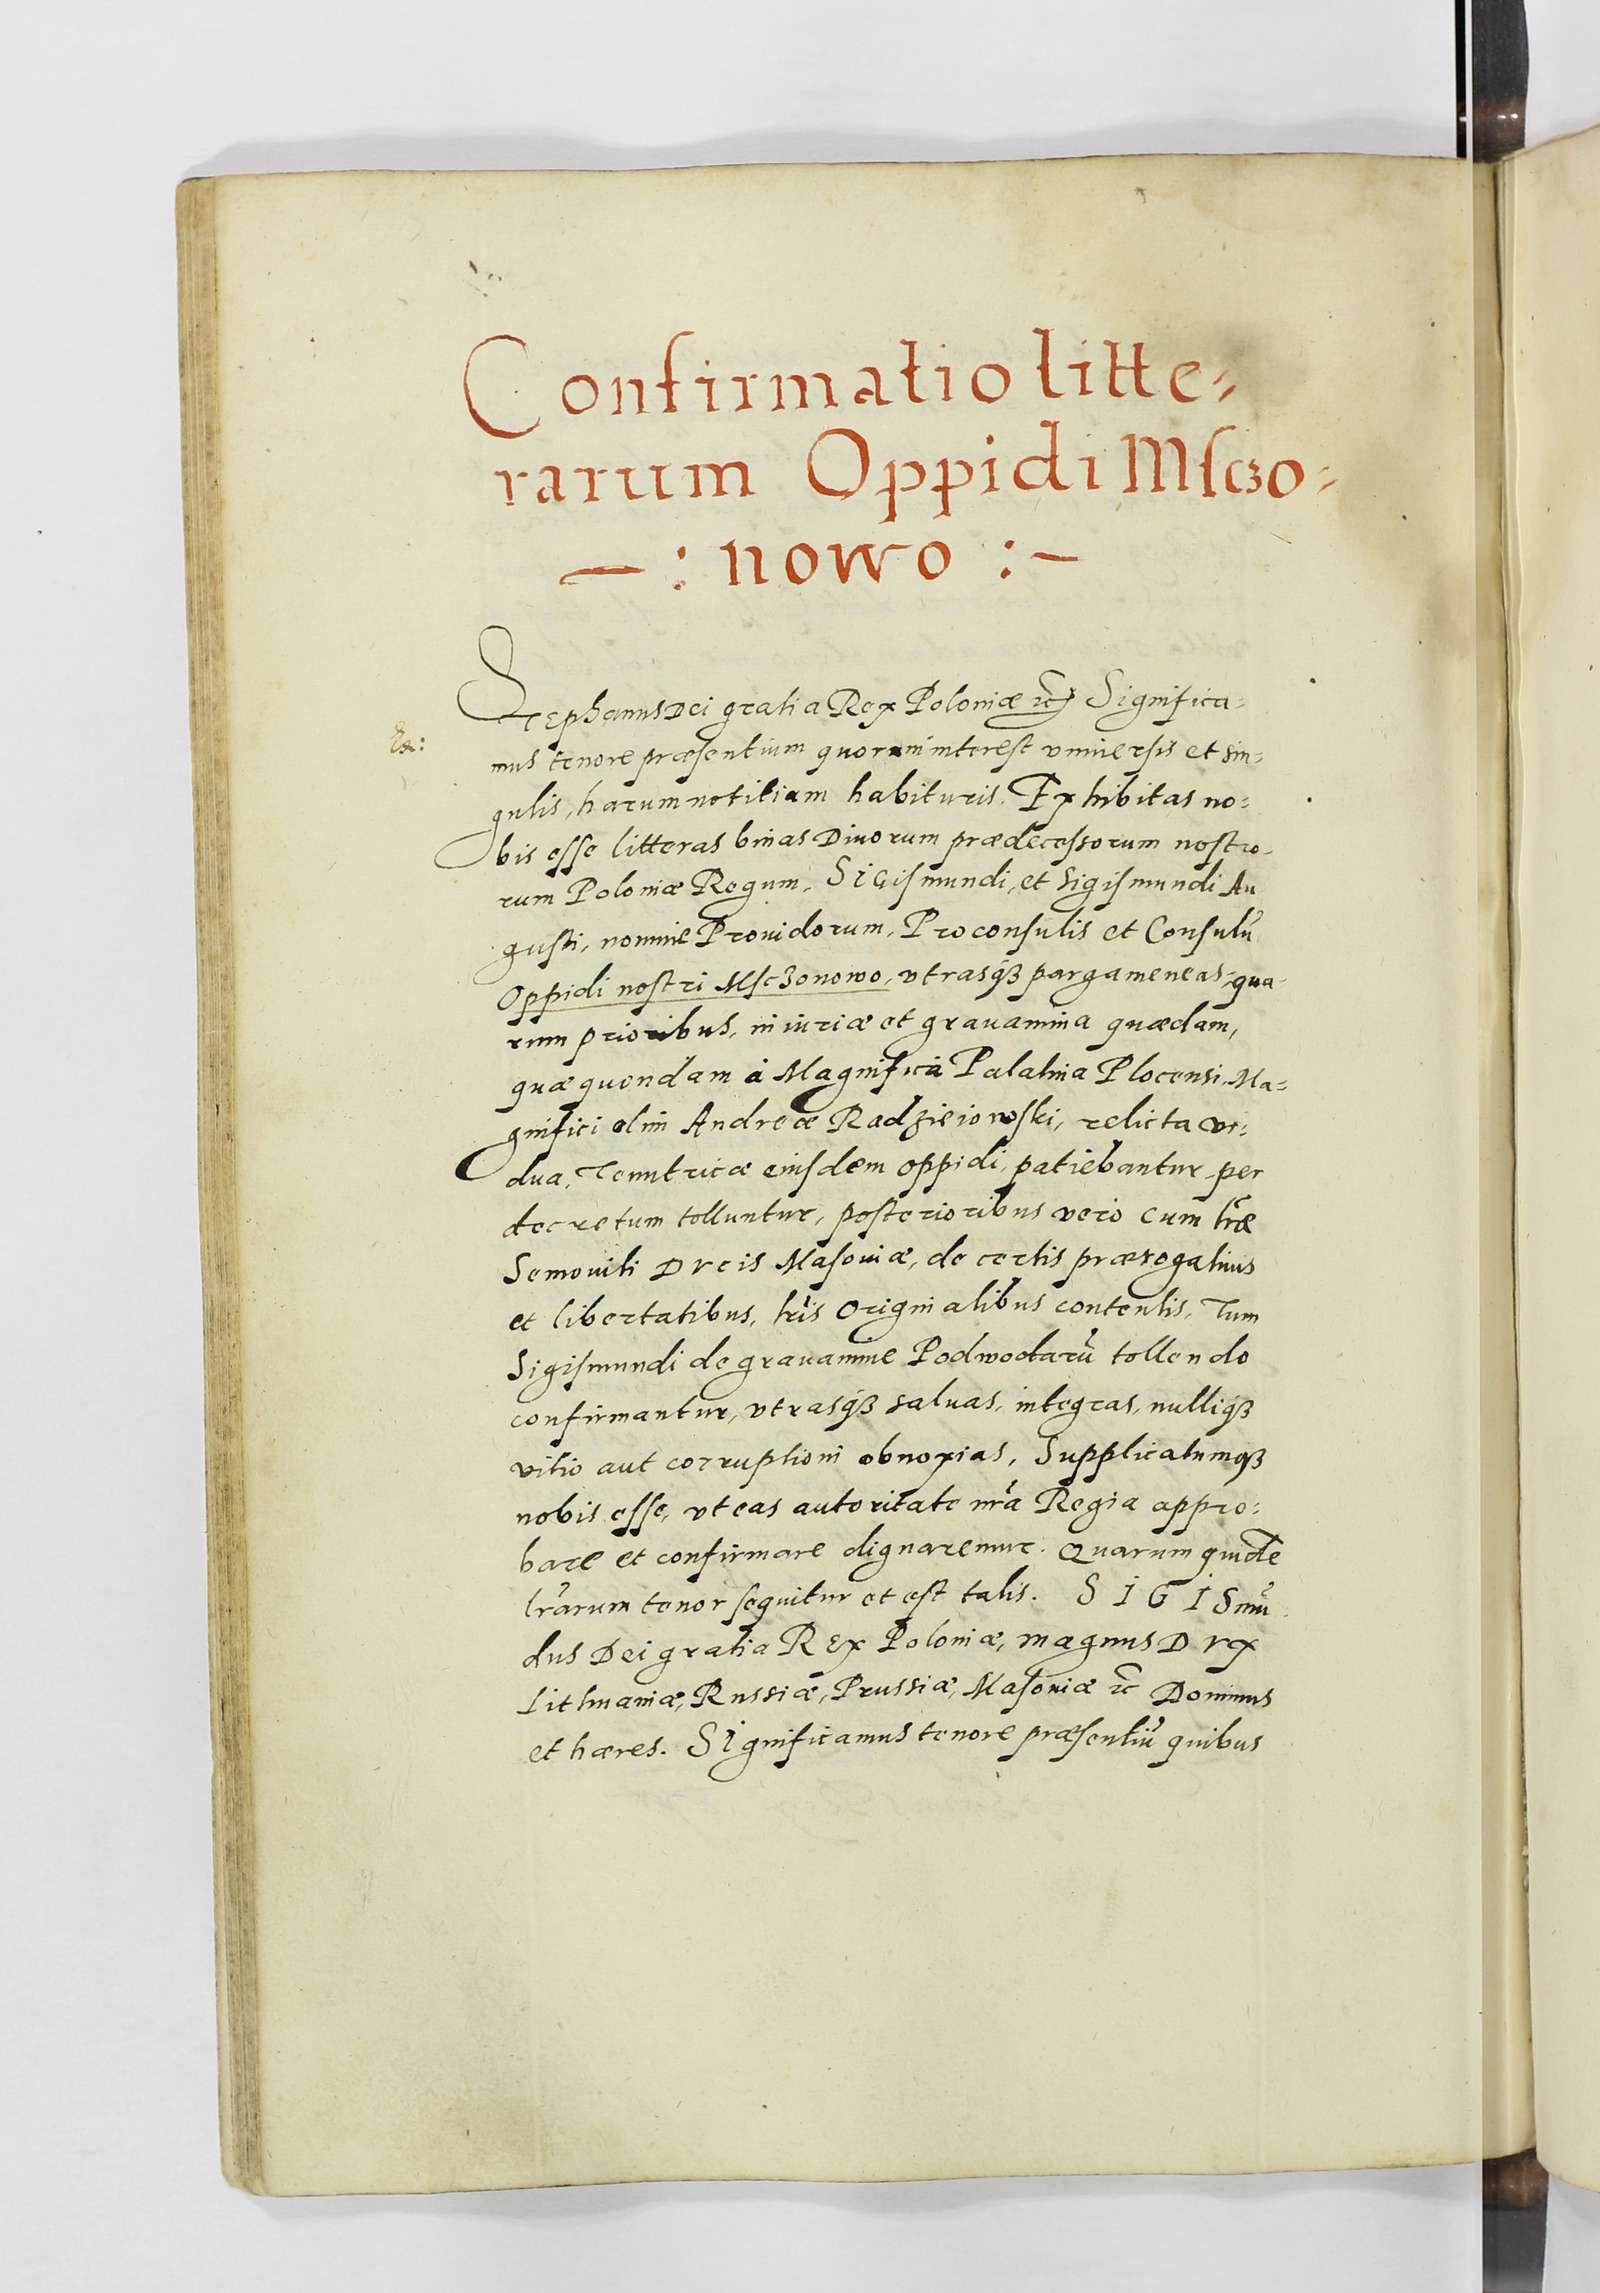 Confirmatio litte-
rarum Oppidi Msczo-
—: nowo :—
Stephanus Dei gratia Rex Poloniæ ꝛc̃ Significa-
mus tenore præsentium quorum interest vniuersis et sin-
gulis, harum notitiam habituris. Exhibitas no-
bis esse litteras binas Diuorum prædecessorum nostro-
rum Poloniæ Regum, SIGismundi, et Sigismundi Au
gusti, nomine Prouidorum, Proconsulis et Consulũ
Oppidi nostri Msczonowo, vtrasqȝ pargameneas, qua-
rum prioribus, iniuriæ et grauamina quædam,
quæ quondam à Magnifica Palatina Plocensi, Ma-
gnifici olim Andreæ Radzieiowski, relicta vi-
dua, Tenutricæ eiusdem oppidi, patiebantur, per
decretum tolluntur, posterioribus vero cum lr̃æ
Semouiti Dvcis Masouiæ, de certis prærogatiuis
et libertatibus, lr̃is Originalibus contentis, Tum
Sigismundi de grauamine Podwodarũ tollendo
confirmantur, vtrasqȝ saluas, integras, nulliqȝ
vitio aut corruptioni obnoxias, Supplicatumqȝ
nobis esse, vt eas autoritate nr̃a Regia appro-
bare et confirmare dignaremur. Quarum quidẽ
lr̃arum tenor sequitur et est talis. SIGISmũ
dus Dei gratia REx Poloniæ, magnus Dvx
Lithuaniæ, Russiæ, Prussiæ, Masouiæ ꝛc̃ Dominus
et hæres. SIgnificamus tenore præsentiũ quibus